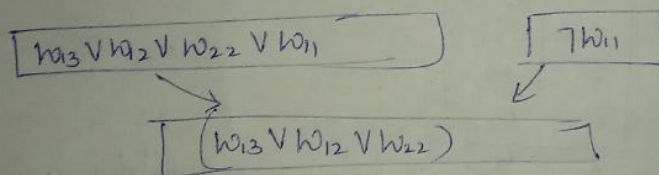 W13 ∨ W12 ∨ W22 ∨ W11
¬W11
(W13 ∨ W12 ∨ W22)